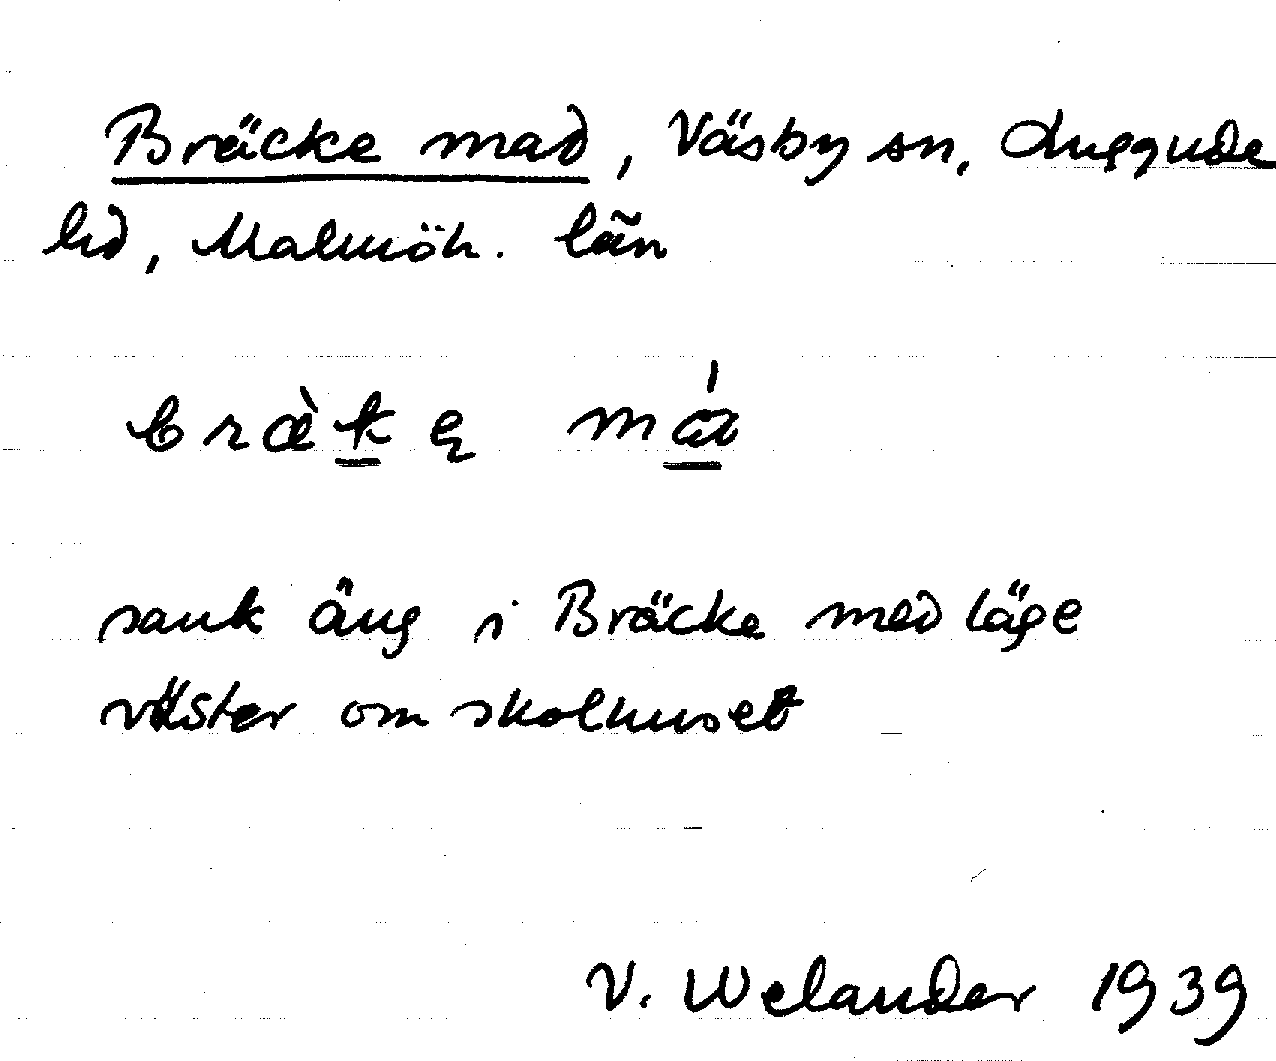 Bräcke mad, Väsby sn, Luggude
hd, Malmöh. län
bræ̀kę
sank äng i Bräcke med läge
väster om skolhuset
V. Welander 1939